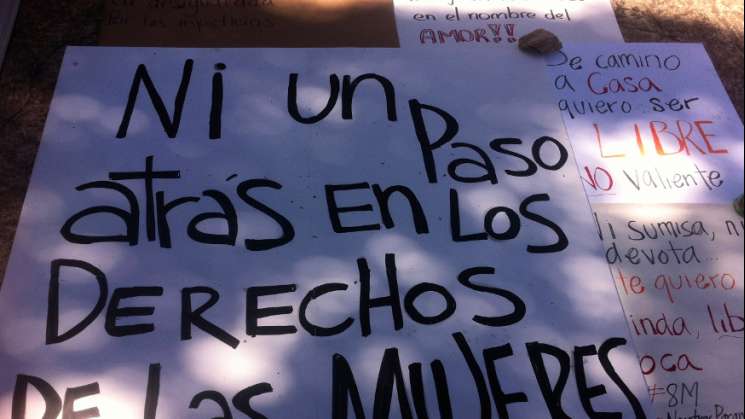 en las injusticias
en el nombre del
AMOR!!
Ni un Paso
atrás EN LOS
DERECHOS
DE Las MUJERES
De camino
a Casa
quiero ser
LIBRE
NO valiente
Ni sumisa, ni
devota...
te quiero
linda, lib
loca
#8M